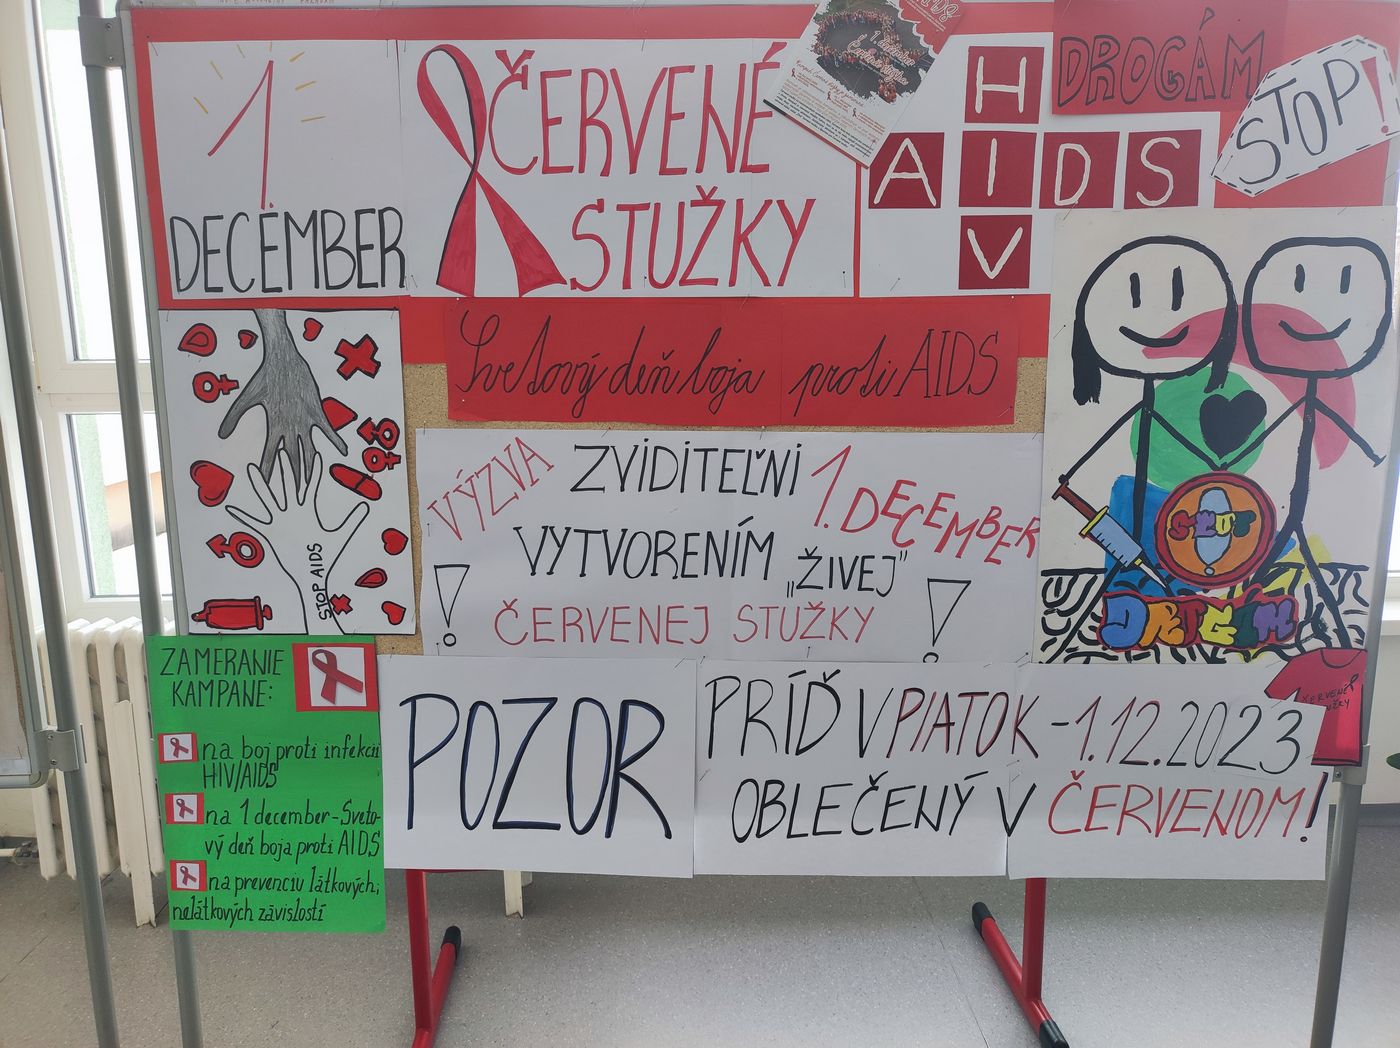 1.
DECEMBER
ČERVENÉ
STUŽKY
H
AIDS
V
DROGÁM
STOP!
Svetový deň boja proti AIDS
STOP AIDS
VÝZVA ZVIDITEĽNI 1. DECEMBER
VYTVORENÍM „ŽIVEJ"
! ČERVENEJ STUŽKY !
ZAMERANIE
KAMPANE:
na boj proti infekcii
HIV/AIDS
na 1 december - Sveto-
vý deň boja proti AIDS
na prevenciu látkových,
nelátkových závislostí
POZOR
PRÍĎ V PIATOK - 1.12.2023
OBLEČENÝ V ČERVENOM!
ČERVENÉ